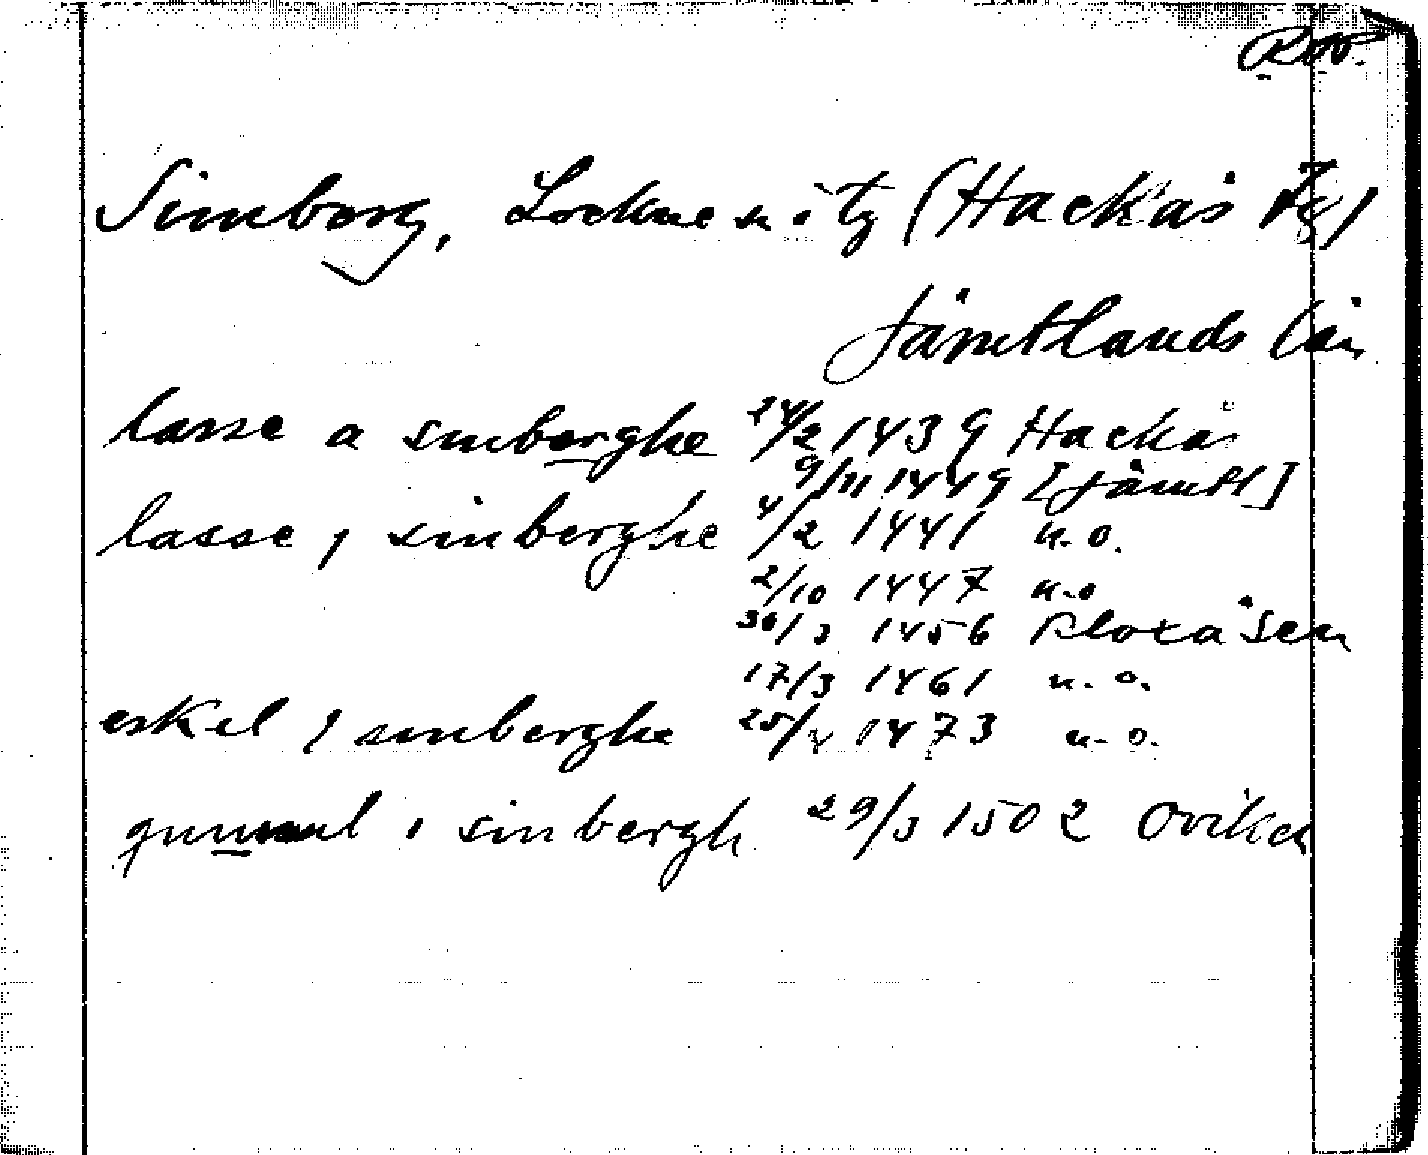 Simborg, Lockne sn o tg (Hackås tg)
Jämtlands län
lasse a sinberghe 24/2 1439 Hackås
9/11 1449 [Jämtl]
lasse j sinberghe 4/2 1441 u.o.
2/10 1447 u.o
30/3 1456 Kloxåsen
17/3 1461 u.o.
eskel j sinberghe 25/4 1473 u.o.
i sinbergh 29/3 1502 Oviken